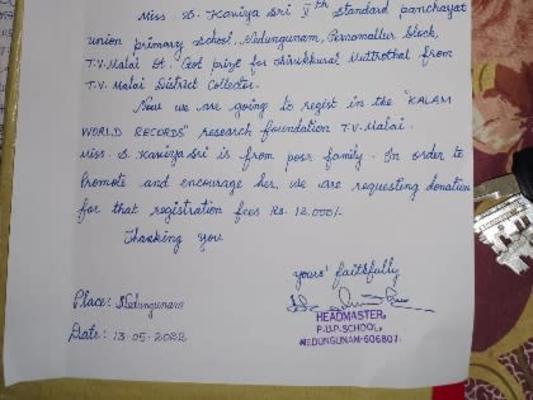 Miss. S. Kaviya Sri Vth Standard panchayat
union primary School, Nedungunam, Pernamallur block,
T.V.Malai Dt. Got prize for thirukkural Muttrothal from
T.V. Malai District Collector.
Now we are going to regist in the "KALAM
WORLD RECORDS" research foundation T.V.Malai.
Miss. S. Kaviya Sri is from poor family. In order to
Promote and encourage her, we are requesting donation
for that registration fees Rs. 12,000/-
Thanking you
yours' faithfully
Place: Nedungunam
Date: 13-05-2022
HEADMASTER,
P.U.P. SCHOOL,
NEDUNGUNAM-606807.